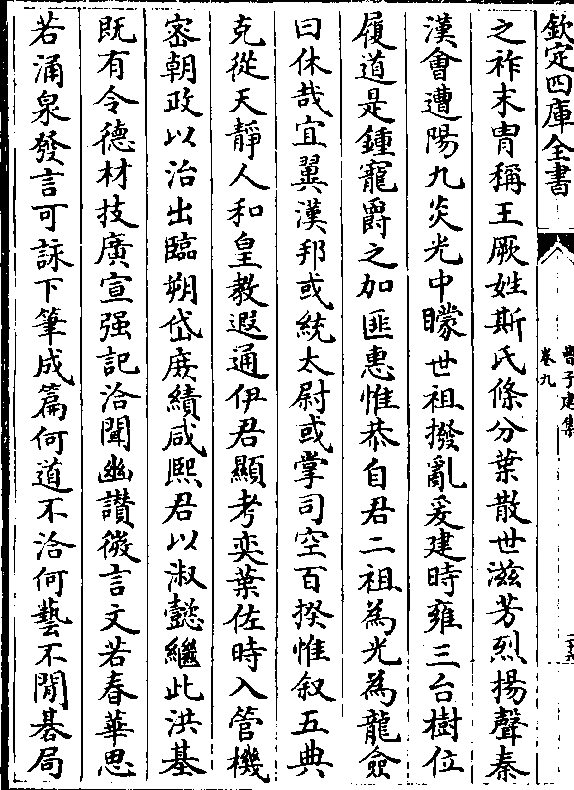 欽定四庫全書
曹子建集
卷九
之祚末胄稱王厥姓斯氏條分葉散世滋芳烈揚聲秦
漢會遭陽九炎光中矇世祖撥亂爰建時雍三台樹位
履道是鍾寵爵之加匪惠惟恭自君二祖為光為龍僉
曰休哉宜翼漢邦或統太尉或掌司空百揆惟叙五典
克從天靜人和皇教遐通伊君顯考奕葉佐時入管機
密朝政以治出臨朔岱庶績咸熙君以淑懿繼此洪基
既有令德材技廣宣强記洽聞幽讚微言文若春華思
若涌泉發言可詠下筆成篇何道不洽何藝不閒棊局